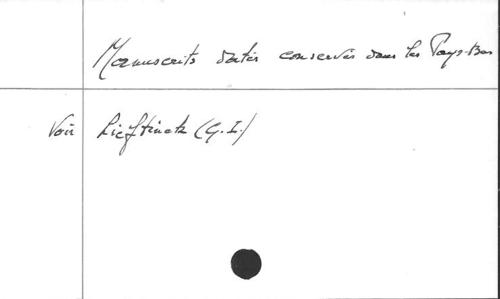 Manuscrits datés conservés dans les Pays-Bas
Voir Lieftinck (G.I.)